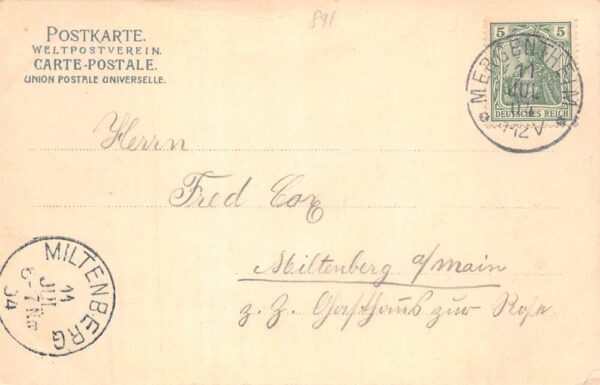 891
POSTKARTE.
WELTPOSTVEREIN.
CARTE-POSTALE.
UNION POSTALE UNIVERSELLE.
5 5
DEUTSCHES REICH
MERGENTHEIM
11
JUL
04
Herrn
Fred Cox
Miltenberg a/main
z. Z. Gasthaus zur Rose
MILTENBERG
11
JUL
6-7 Nm
04